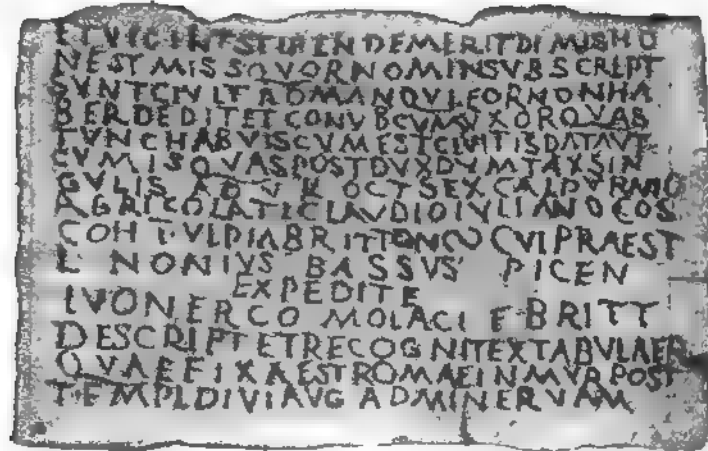 ET VICINT STIPEN DEMERIT DIMIS HO
NEST MISSO QVOR NOMIN SVBSCRIPT
SVNT CIVIT ROMAN QVI EOR NON HA
BER DEDIT ET CONVB CVM VXOR QVAS
TVNC HABVIS CVM EST CIVITIS DATA AVT
CVM IS QVAS POST DVX DVMTAXSIN
GVLIS OCT SEX CALPVRNIO
AGRICOLA TI CLAVDIO IVLIANO COS
COH I VLPIA BRITTON CVI PRAEST
L NONIVS BASSVS PICEN
EXPEDITE
IVONERCO MOLACI F BRITT
DESCRIPT ET RECOGNIT EX TABVLAER
QVAE FIXA EST ROMAE IN MVR POST
TEMPL DIVI AVG AD MINERVAM